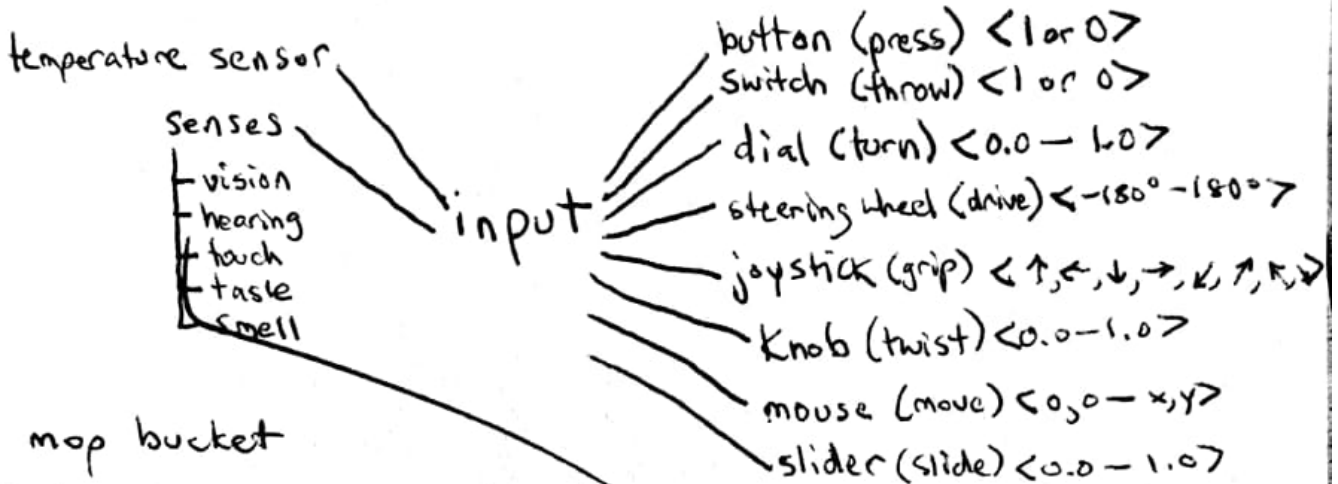 temperature sensor
senses
vision
hearing
touch
taste
smell
mop bucket
input
button (press) <1 or 0>
switch (throw) <1 or 0>
dial (turn) <0.0 — 1.0>
steering wheel (drive) <-180° - 180°>
joystick (grip) <↑,←,↓,→,↙,↗,↖,↘>
knob (twist) <0.0 - 1.0>
mouse (move) <0,0 — x,y>
slider (slide) <0.0 — 1.0>